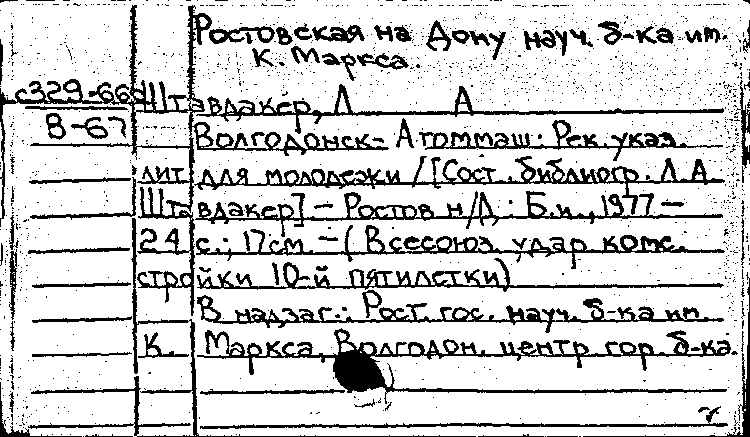 Ростовская на Дону науч. б-ка им.
К. Маркса.
с329-66
В-67
Штавдакер, Л А
Волгодонск- Атоммаш: Рек. указ.
лит. для молодежи / [Сост. библиогр. Л. А.
Штавдакер] - Ростов н/Д: Б.и., 1977 -
24 с.; 17см. - (Всесоюз. удар комс.
стройки 10-й пятилетки)
В надзаг.: Рост. гос. науч. б-ка им.
К. Маркса, Волгодон. центр гор. б-ка.